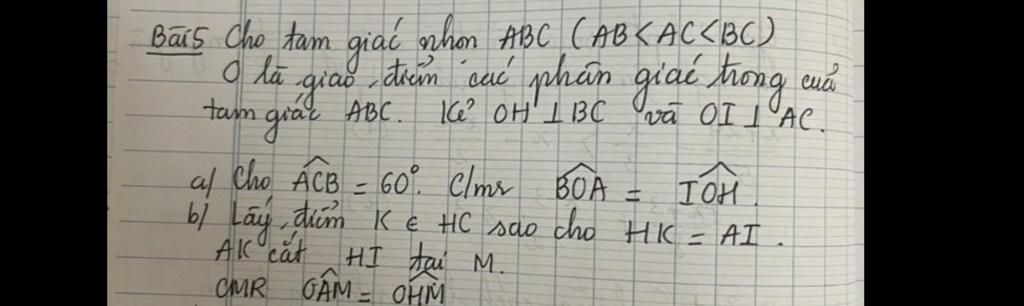 Bài 5 Cho tam giác nhọn ABC (AB < AC < BC)
O là giao điểm các phân giác trong của
tam giác ABC. Kẻ OH ⊥ BC và OI ⊥ AC.
a/ Cho \widehat{ACB} = 60°. C/mr \widehat{BOA} = \widehat{IOH}.
b/ Lấy điểm K ∈ HC sao cho HK = AI.
AK cắt HI tại M.
CMR \widehat{OAM} = \widehat{OHM}